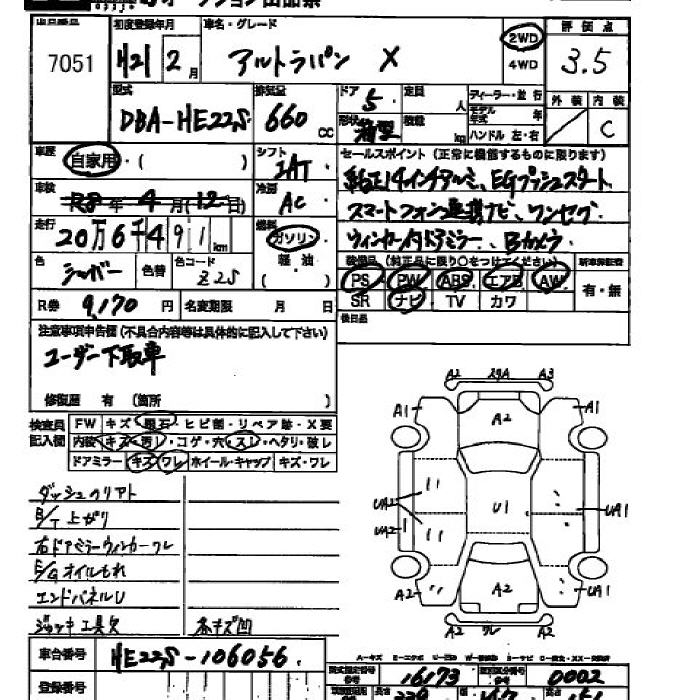 7051
初度登録年月
H21年 2月
車名・グレード
アルトラパン X
2WD
4WD
評価点
3.5
外装 内装
C
型式
DBA-HE22S
排気量
660 cc
ドア
5
定員
人
形状
積載
kg
ディーラー・並行
モデル年式 年
ハンドル 左・右
車歴
自家用・( )
シフト
冷房
AC
車検
R8年 4月(12日)
走行
20万6千491 km
燃料
ガソリン
軽油
( )
色
シルバー
色替
色コード
Z2S
R券 9,170円
名変期限 月 日
セールスポイント (正常に機能するものに限ります)
純正14インチアルミ、EGプッシュスタート
スマートフォン連携ナビ、ワンセグ
ウィンカー付ドアミラー、Bカメラ
装備品 (純正品に限り○をつけてください)
新車保証書
有・無
PS PW ABS エアB AW
SR ナビ TV カワ
後日品
注意事項申告欄 (不具合内容等は具体的に記入して下さい)
ユーザー下取車
修復歴 有 (箇所 )
検査員記入欄
FW キズ・飛石・ヒビ割・リペア跡・X要
内装 キズ・汚レ・コゲ・穴・スレ・ヘタリ・破レ
ドアミラー キズ・ワレ ホイール・キャップ キズ・ワレ
B/T上がり
右ドアミラーウィンカーワレ
E/Gオイルもれ
エンドパネルU
ジャッキ工具欠
小キズ凹
A2 A3
A1 A2 A1
UA2 U1 UA1
UA2
A2 A2 UA1
A2 ワレ A2
車台番号
HE22S-106056
登録番号
型式指定番号
16173
0002